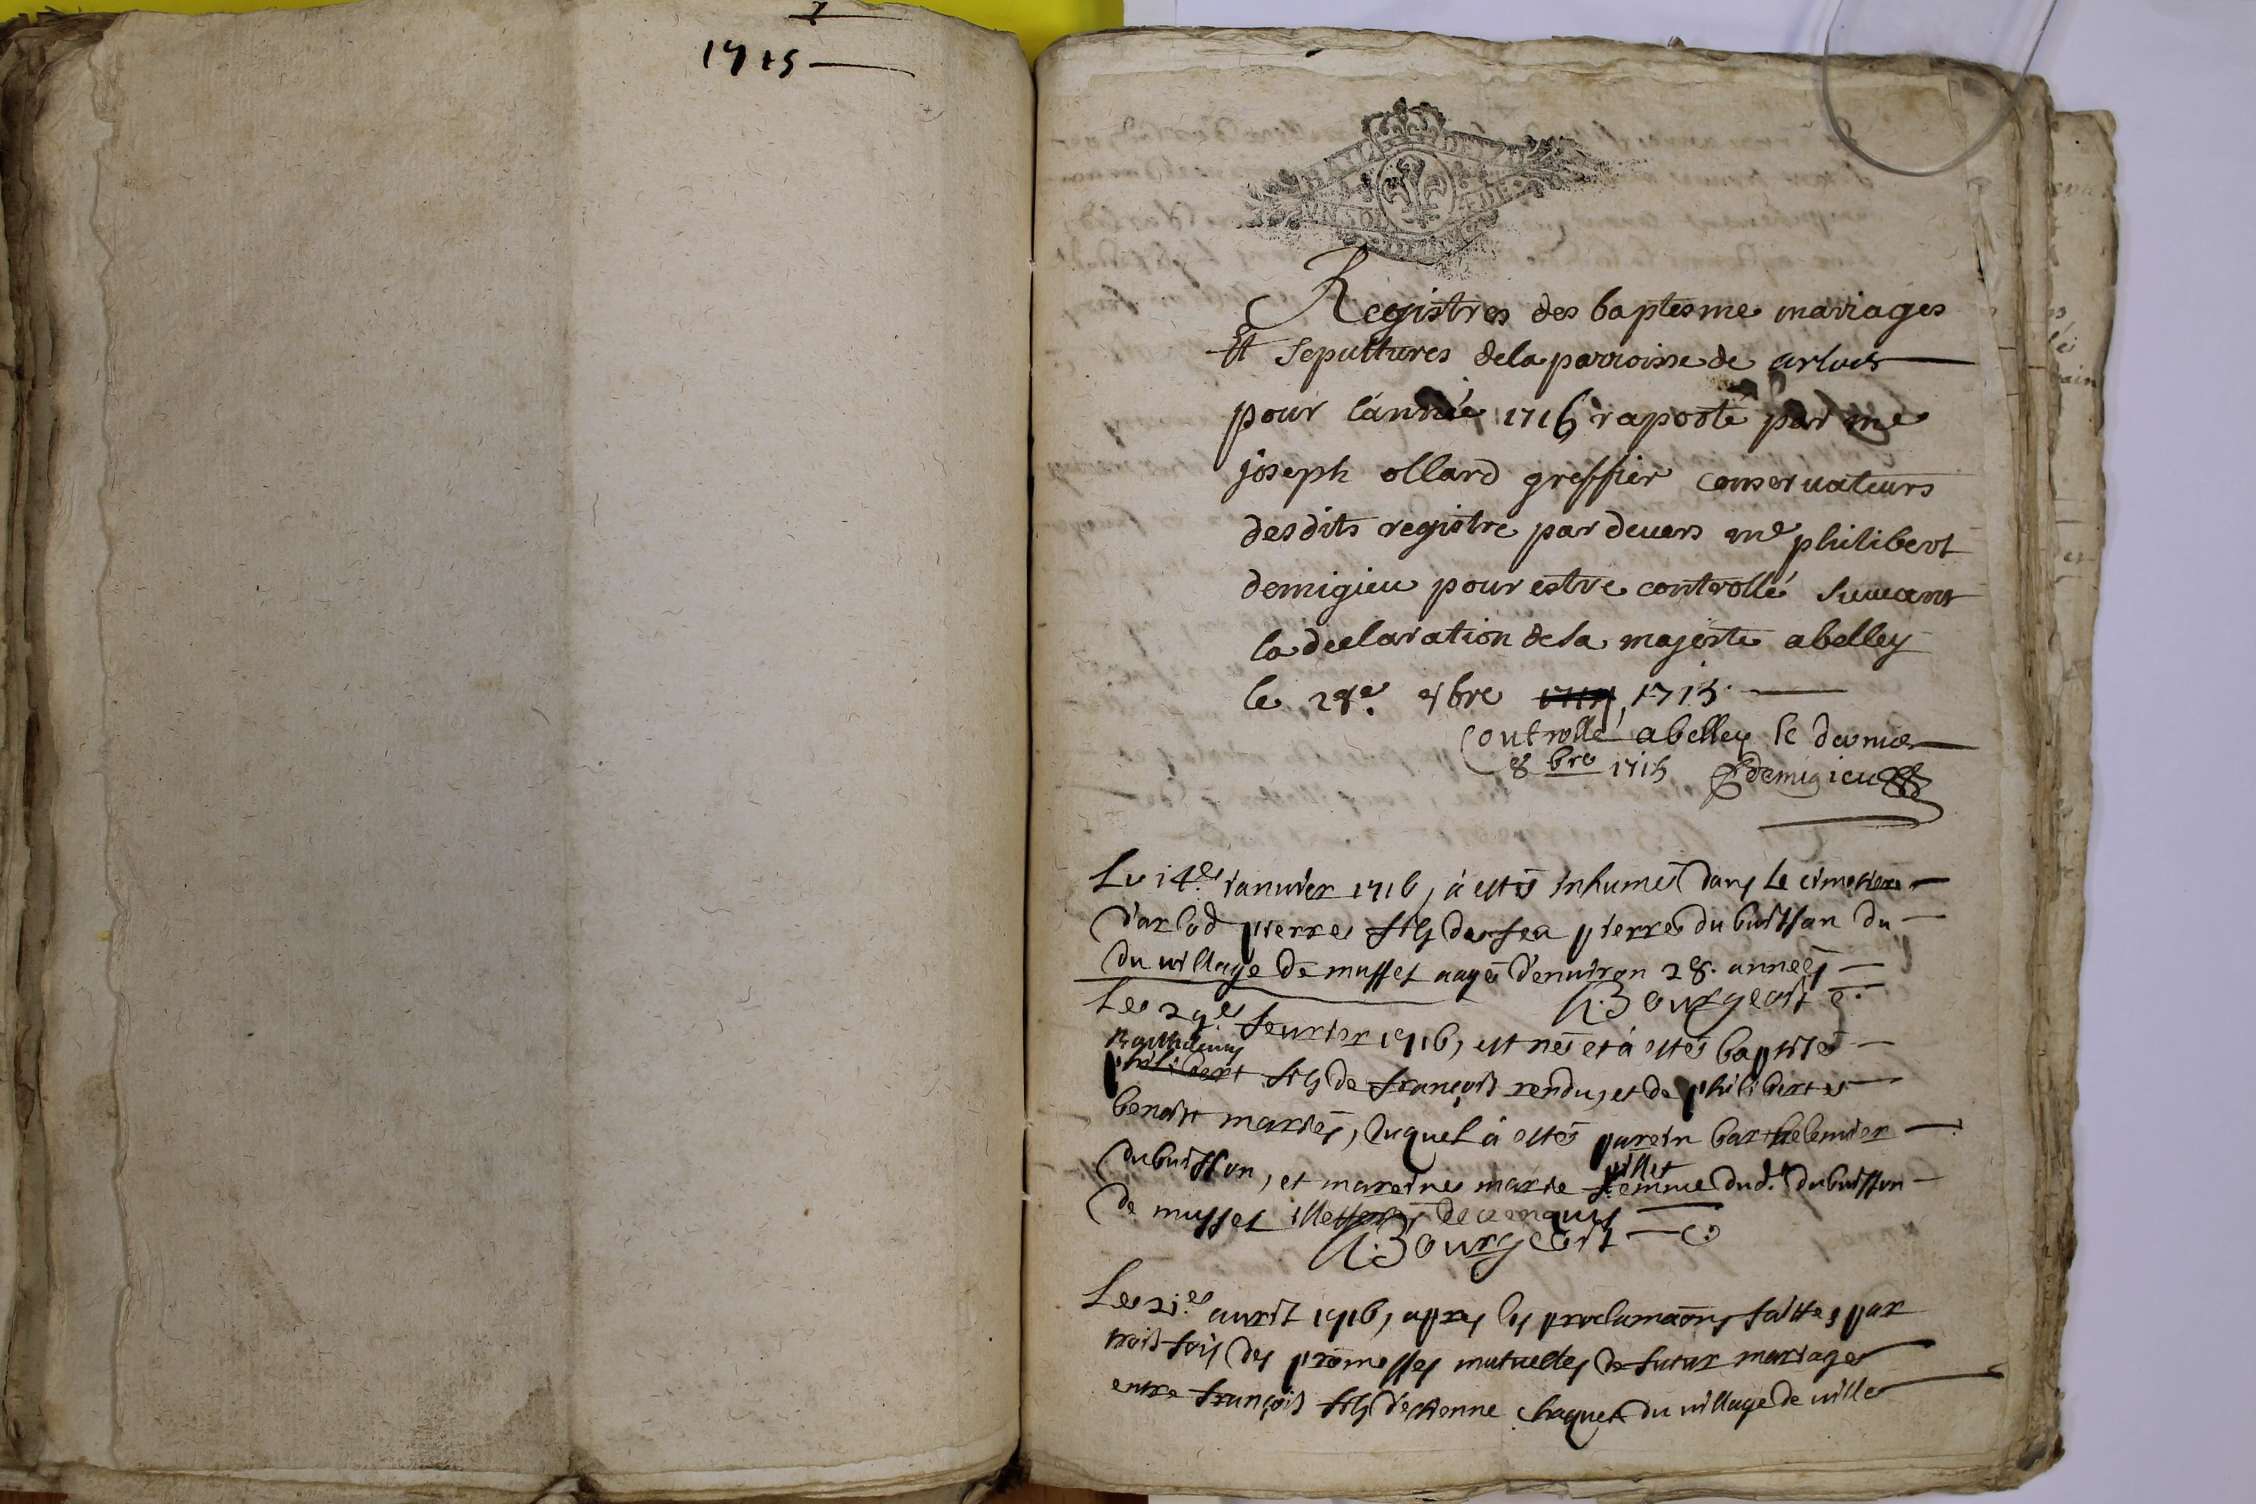 1715
Registres des baptesme mariages
Et Sepultures dela parroisse de arlod
pour l'année 1716 raporté par me
joseph ollard greffier conservateurs
desdits registre par devers me philibert
demigieu pour estre controllé suiuant
la declaration de sa majesté abelley
le 28e 8bre 1715
Controllé abelley le dernier
8bre 1715 Pdemigieu
Le 14e ianuier 1716, à estés inhumés dans le cimetiere
d'arlod pierre fils de feu pierre dubuisson du
du village de mussel aagé d'enuiron 28. années
Bourgeois
Le 29e feurier 1716, est nés et à estés baptisés
Barthelemy
philibert fils de françois rendu, et de philiberte
benoist mariés, duquel à estés parein barthelemier
dubuisson, et mareine marie femme dud. dubuisson
pillet
de mussel illeterés de ce enquis
Bourgeois
Le 21e auril 1716, apres les proclamaons faittes par
trois fois des promesses mutuelles de futur mariage
entre françois fils d'etienne du village de ville